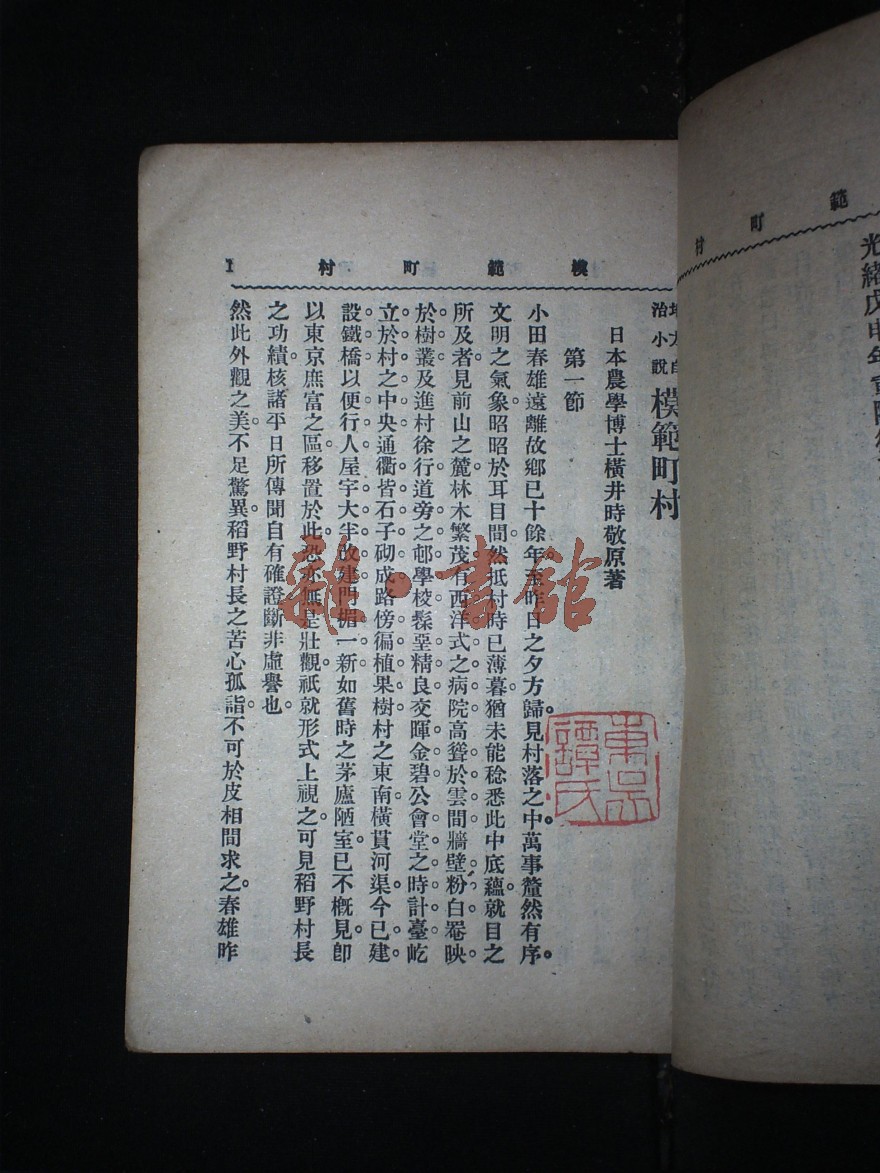 範町村
光緒戊申年
模範町村 1
地方自治小說 模範町村
日本農學博士橫井時敬原著
第一節
小田春雄遠離故鄉已十餘年至昨日之夕方歸見村落之中萬事釐然有序
文明之氣象昭昭於耳目間然抵村時已薄暮猶未能稔悉此中底蘊就目之
所及者見前山之麓林木繁茂有西洋式之病院高聳於雲間牆壁粉白罨映
於樹叢及進村徐行道旁之邨學校髹堊精良交暉金碧公會堂之時計臺屹
立於村之中央通衢皆石子砌成路傍徧植果樹村之東南橫貫河渠今已建
設鐵橋以便行人屋宇大半改建門楣一新如舊時之茅廬陋室已不概見卽
以東京庶富之區移置於此恐亦無是壯觀祇就形式上視之可見稻野村長
之功績核諸平日所傳聞自有確證斷非虛譽也
然此外觀之美不足驚異稻野村長之苦心孤詣不可於皮相間求之春雄昨
東吳譚氏
雜·書館